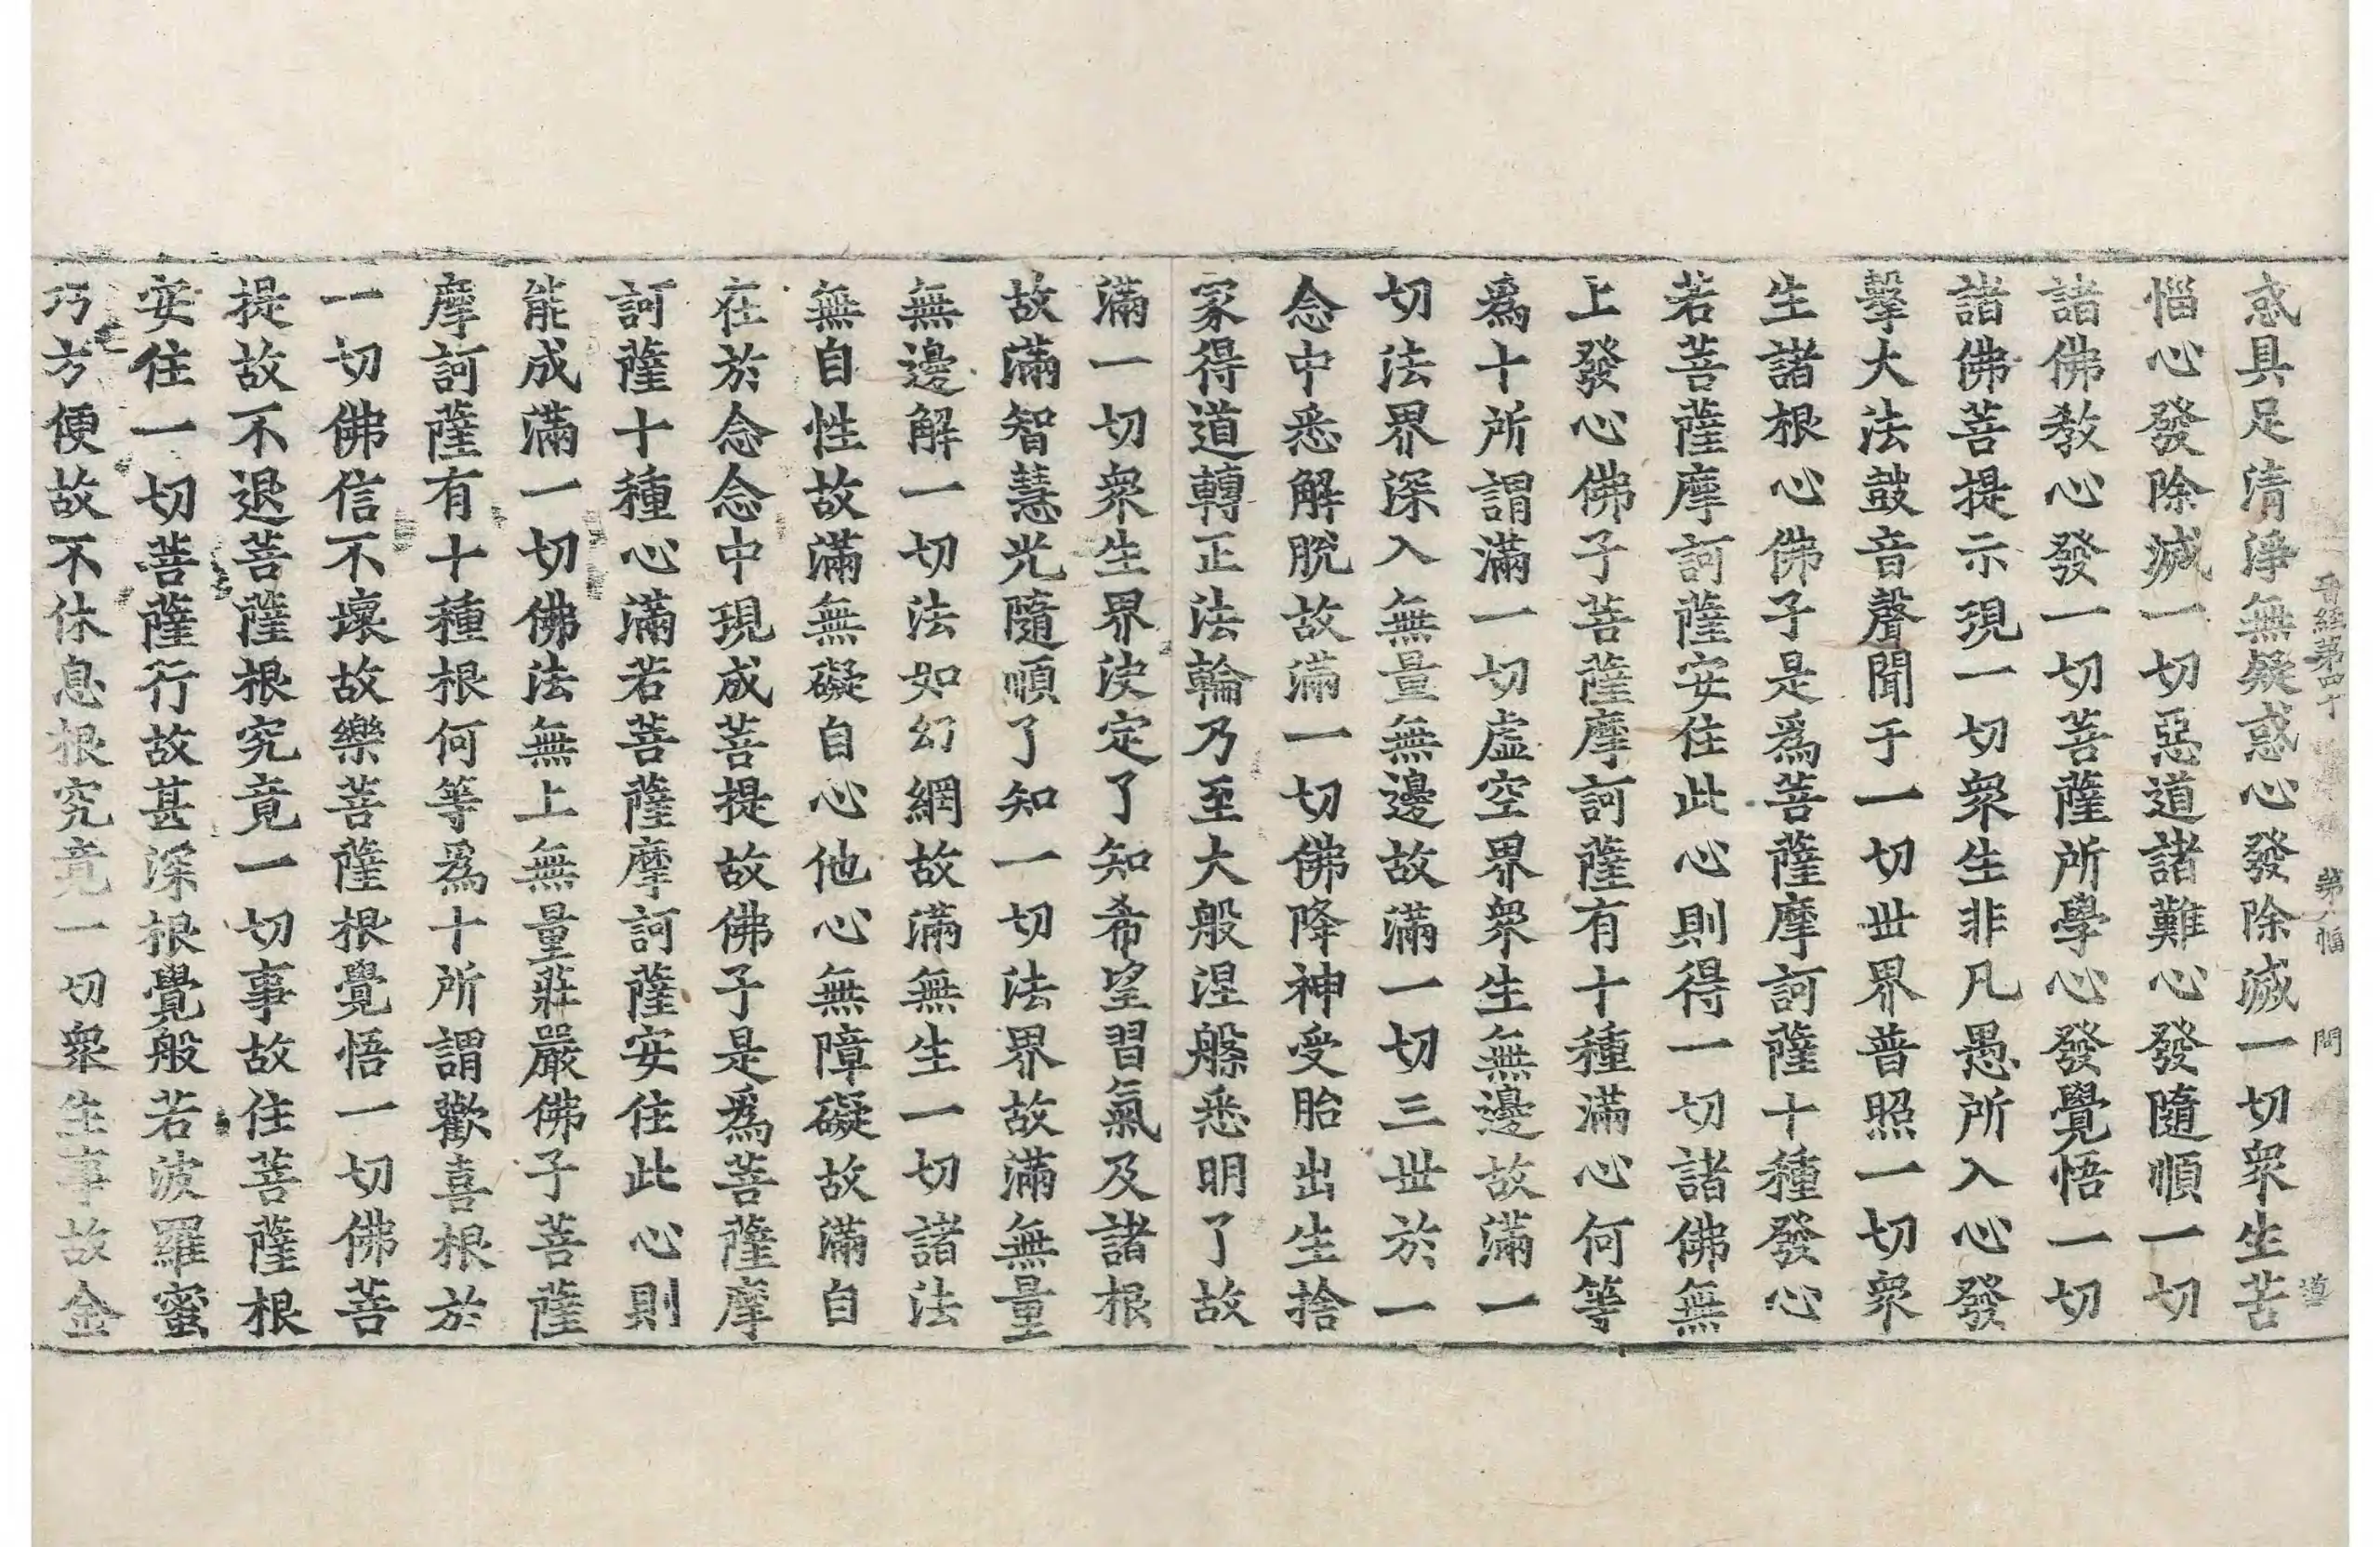 晋經第四十 第八幅 問 道
惑具足清淨無疑惑心發除滅一切衆生苦
惱心發除滅一切惡道諸難心發隨順一切
諸佛教心發一切菩薩所學心發覺悟一切
諸佛菩提示現一切衆生非凡愚所入心發
擊大法鼓音聲聞于一切世界普照一切衆
生諸根心佛子是爲菩薩摩訶薩十種發心
若菩薩摩訶薩安住此心則得一切諸佛無
上發心佛子菩薩摩訶薩有十種滿心何等
爲十所謂滿一切虛空界衆生無邊故滿一
切法界深入無量無邊故滿一切三世於一
念中悉解脫故滿一切佛降神受胎出生捨
家得道轉正法輪乃至大般涅槃悉明了故
滿一切衆生界決定了知希望習氣及諸根
故滿智慧光隨順了知一切法界故滿無量
無邊解一切法如幻網故滿無生一切諸法
無自性故滿無礙自心他心無障礙故滿自
在於念念中現成菩提故佛子是爲菩薩摩
訶薩十種心滿若菩薩摩訶薩安住此心則
能成滿一切佛法無上無量莊嚴佛子菩薩
摩訶薩有十種根何等爲十所謂歡喜根於
一切佛信不壞故樂菩薩根覺悟一切佛菩
提故不退菩薩根究竟一切事故住菩薩根
安住一切菩薩行故甚深根覺般若波羅蜜
巧方便故不休息根究竟一切衆生事故金